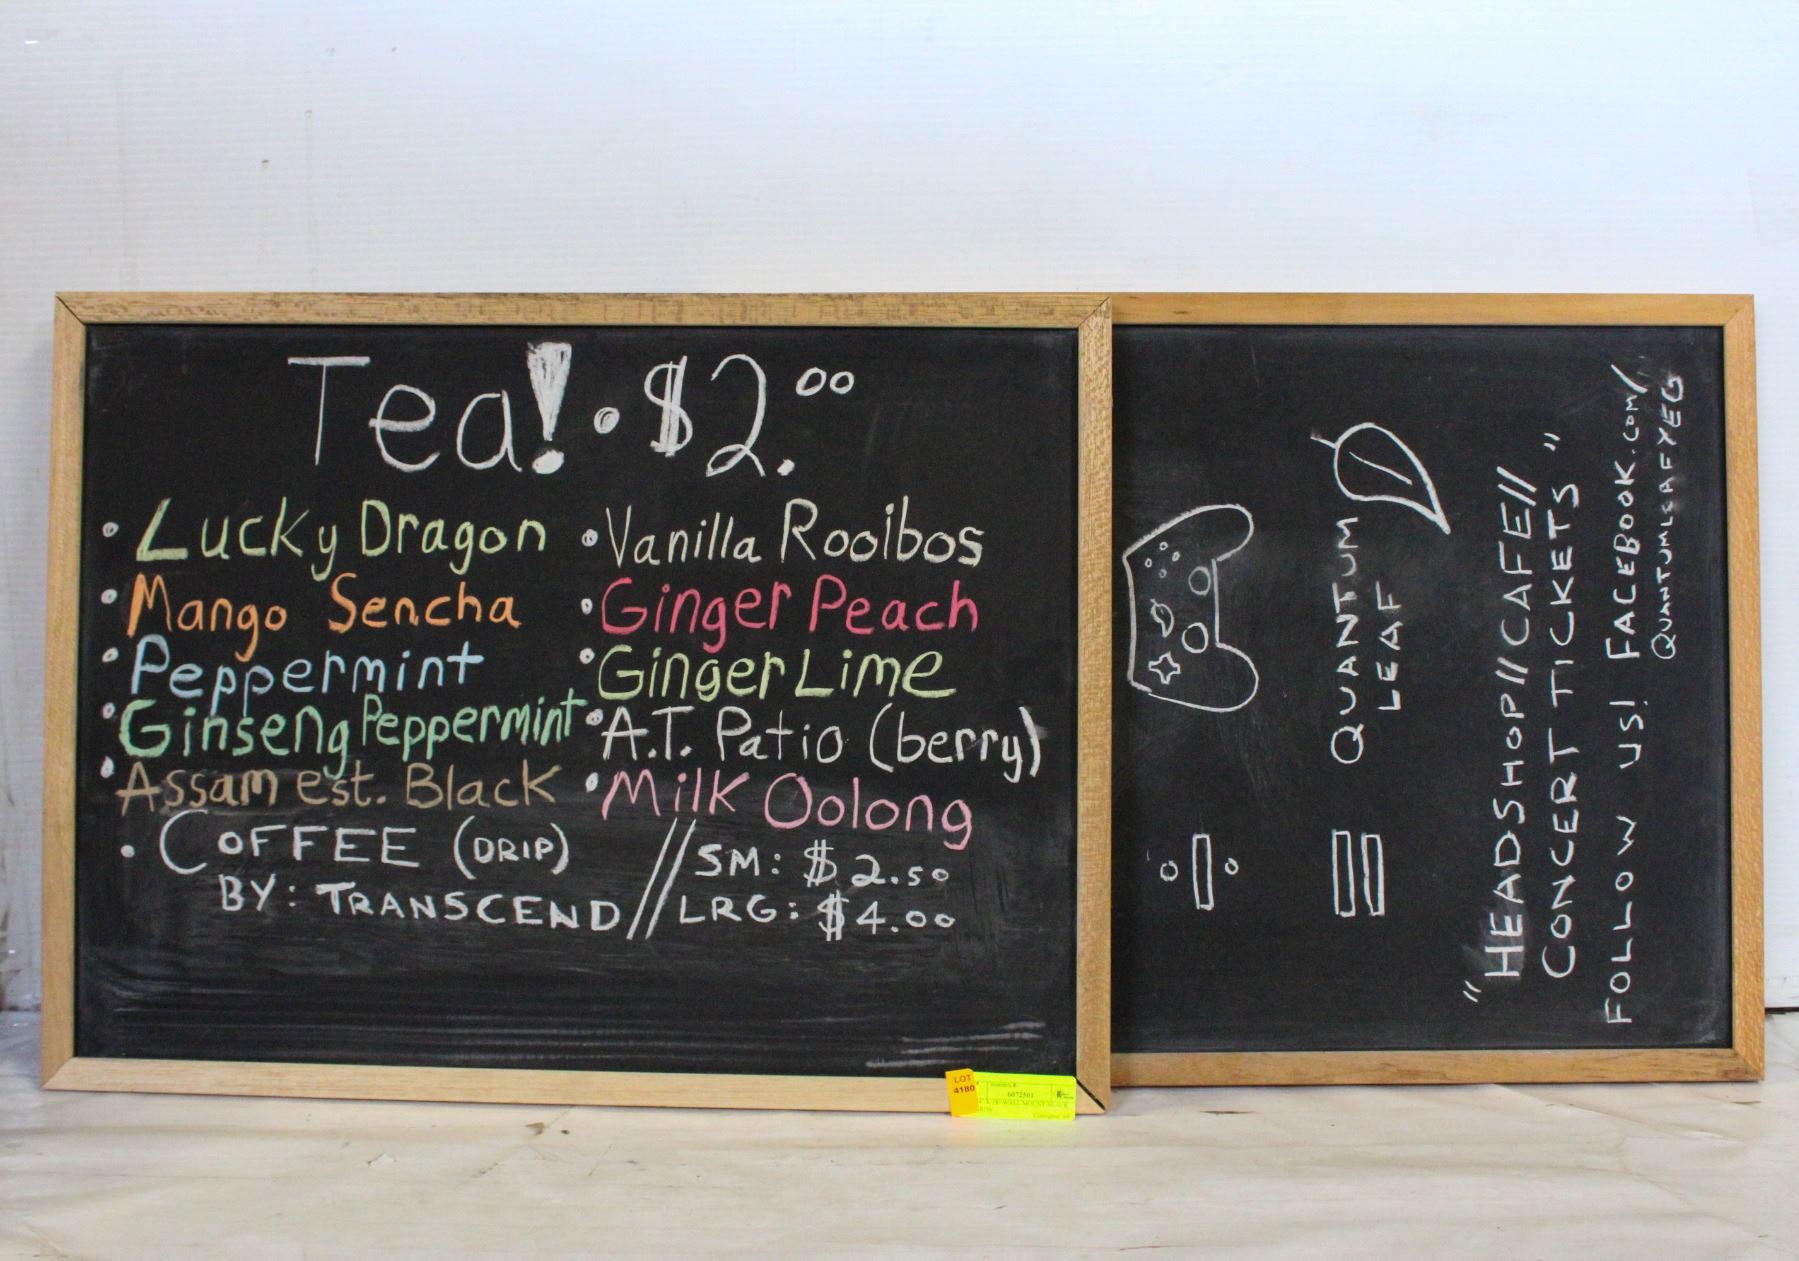 Tea! • $2.00
• Lucky Dragon
• Mango Sencha
• Peppermint
• Ginseng Peppermint
• Assam est. Black
• Vanilla Rooibos
• Ginger Peach
• Ginger Lime
• A.T. Patio (berry)
• Milk Oolong
• COFFEE (DRIP)
BY: TRANSCEND // SM: $2.50
LRG: $4.00
QUANTUM
LEAF
"HEADSHOP//CAFE//
CONCERT TICKETS"
FOLLOW US! FACEBOOK.COM/
QUANTUMLEAFYEG
LOT
4180
6072501